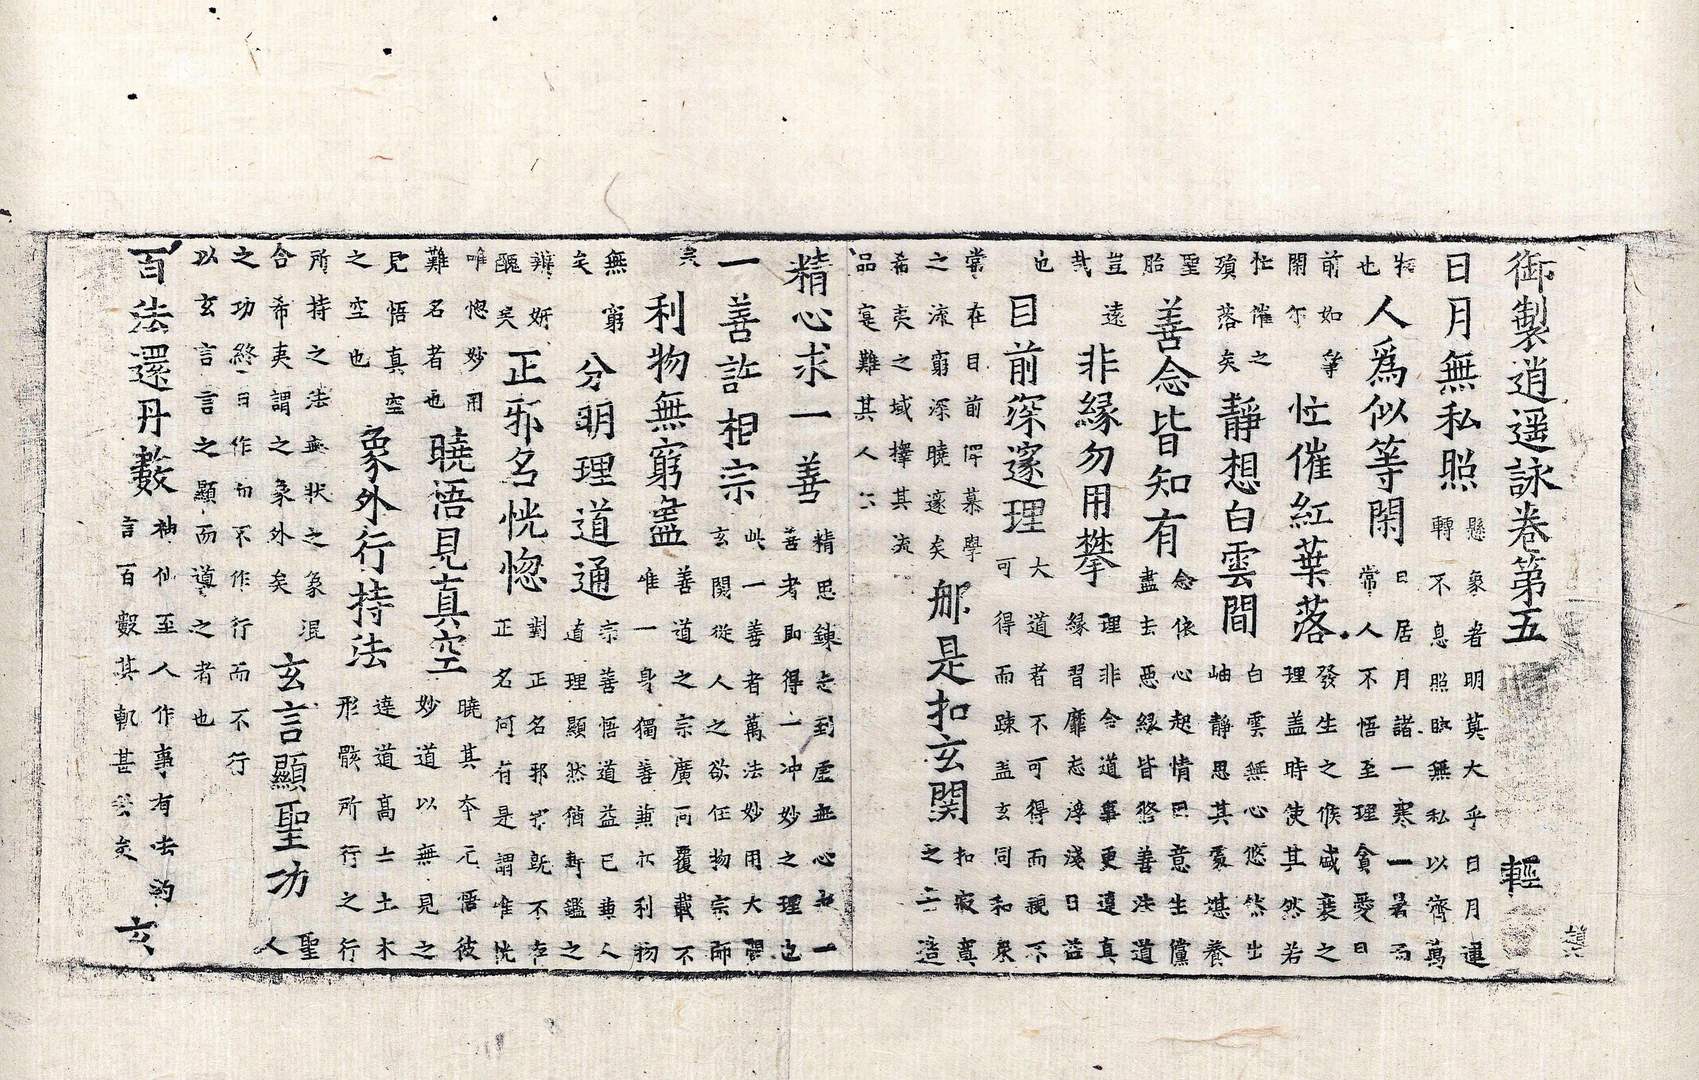 御製逍遥詠卷第五 輕
日月無私照 懸象者明莫大乎日月運 轉不息照臨無私以齊萬
物也 人爲似等閑 日居月諸一寒一暑而 常人不悟至理貪愛日
前如爭 閑尓 忙催紅葉落 發生之候咸衰之 理盖時使其然若
忙催之 殞落矣 靜想白雲間 白雲無心悠然出 岫靜思其處堪養
聖胎 善念皆知有 念依心起情因意生儻 盡去惡緣皆啓善法道
豈遠哉 非緣勿用攀 理非合道事更違真 緣習靡志浮淺日益
也 目前深邃理 大道者不可得而視不 可得而踈盖玄同和衆
常在目前俾慕學 之流窮深曉邃矣 那是扣玄関 扣寂冥 之二造
希夷之域擇其流 品寔難其人尓
精心求一善 精思鍊志到虛無心也一 善者即得一冲妙之理也
一善許相宗 此一善者萬法妙用大 玄関從人之欲任物宗師
矣 利物無窮盡 善道之宗廣而覆載不 唯一身獨善兼亦利物
無窮矣 分明理道通 宗善悟道益已兼人 道理顯然猶鑑之
辨妍 醜矣 正邪名恍惚 對正名邪邪旣不存 正名何有是謂惟恍
唯惚妙用 難名者也 曉悟見真空 曉其夲元悟彼 妙道以無見之
見悟真空 之空也 象外行持法 達道髙士土木 形骸所行之行
所持之法無狀之象混 合希夷謂之象外矣 玄言顯聖功 聖人
之功終日作而不作行而不行 以玄言言之顯而道之者也
百法還丹數 神仙至人作事有法的 言百數其軌甚妙矣 玄